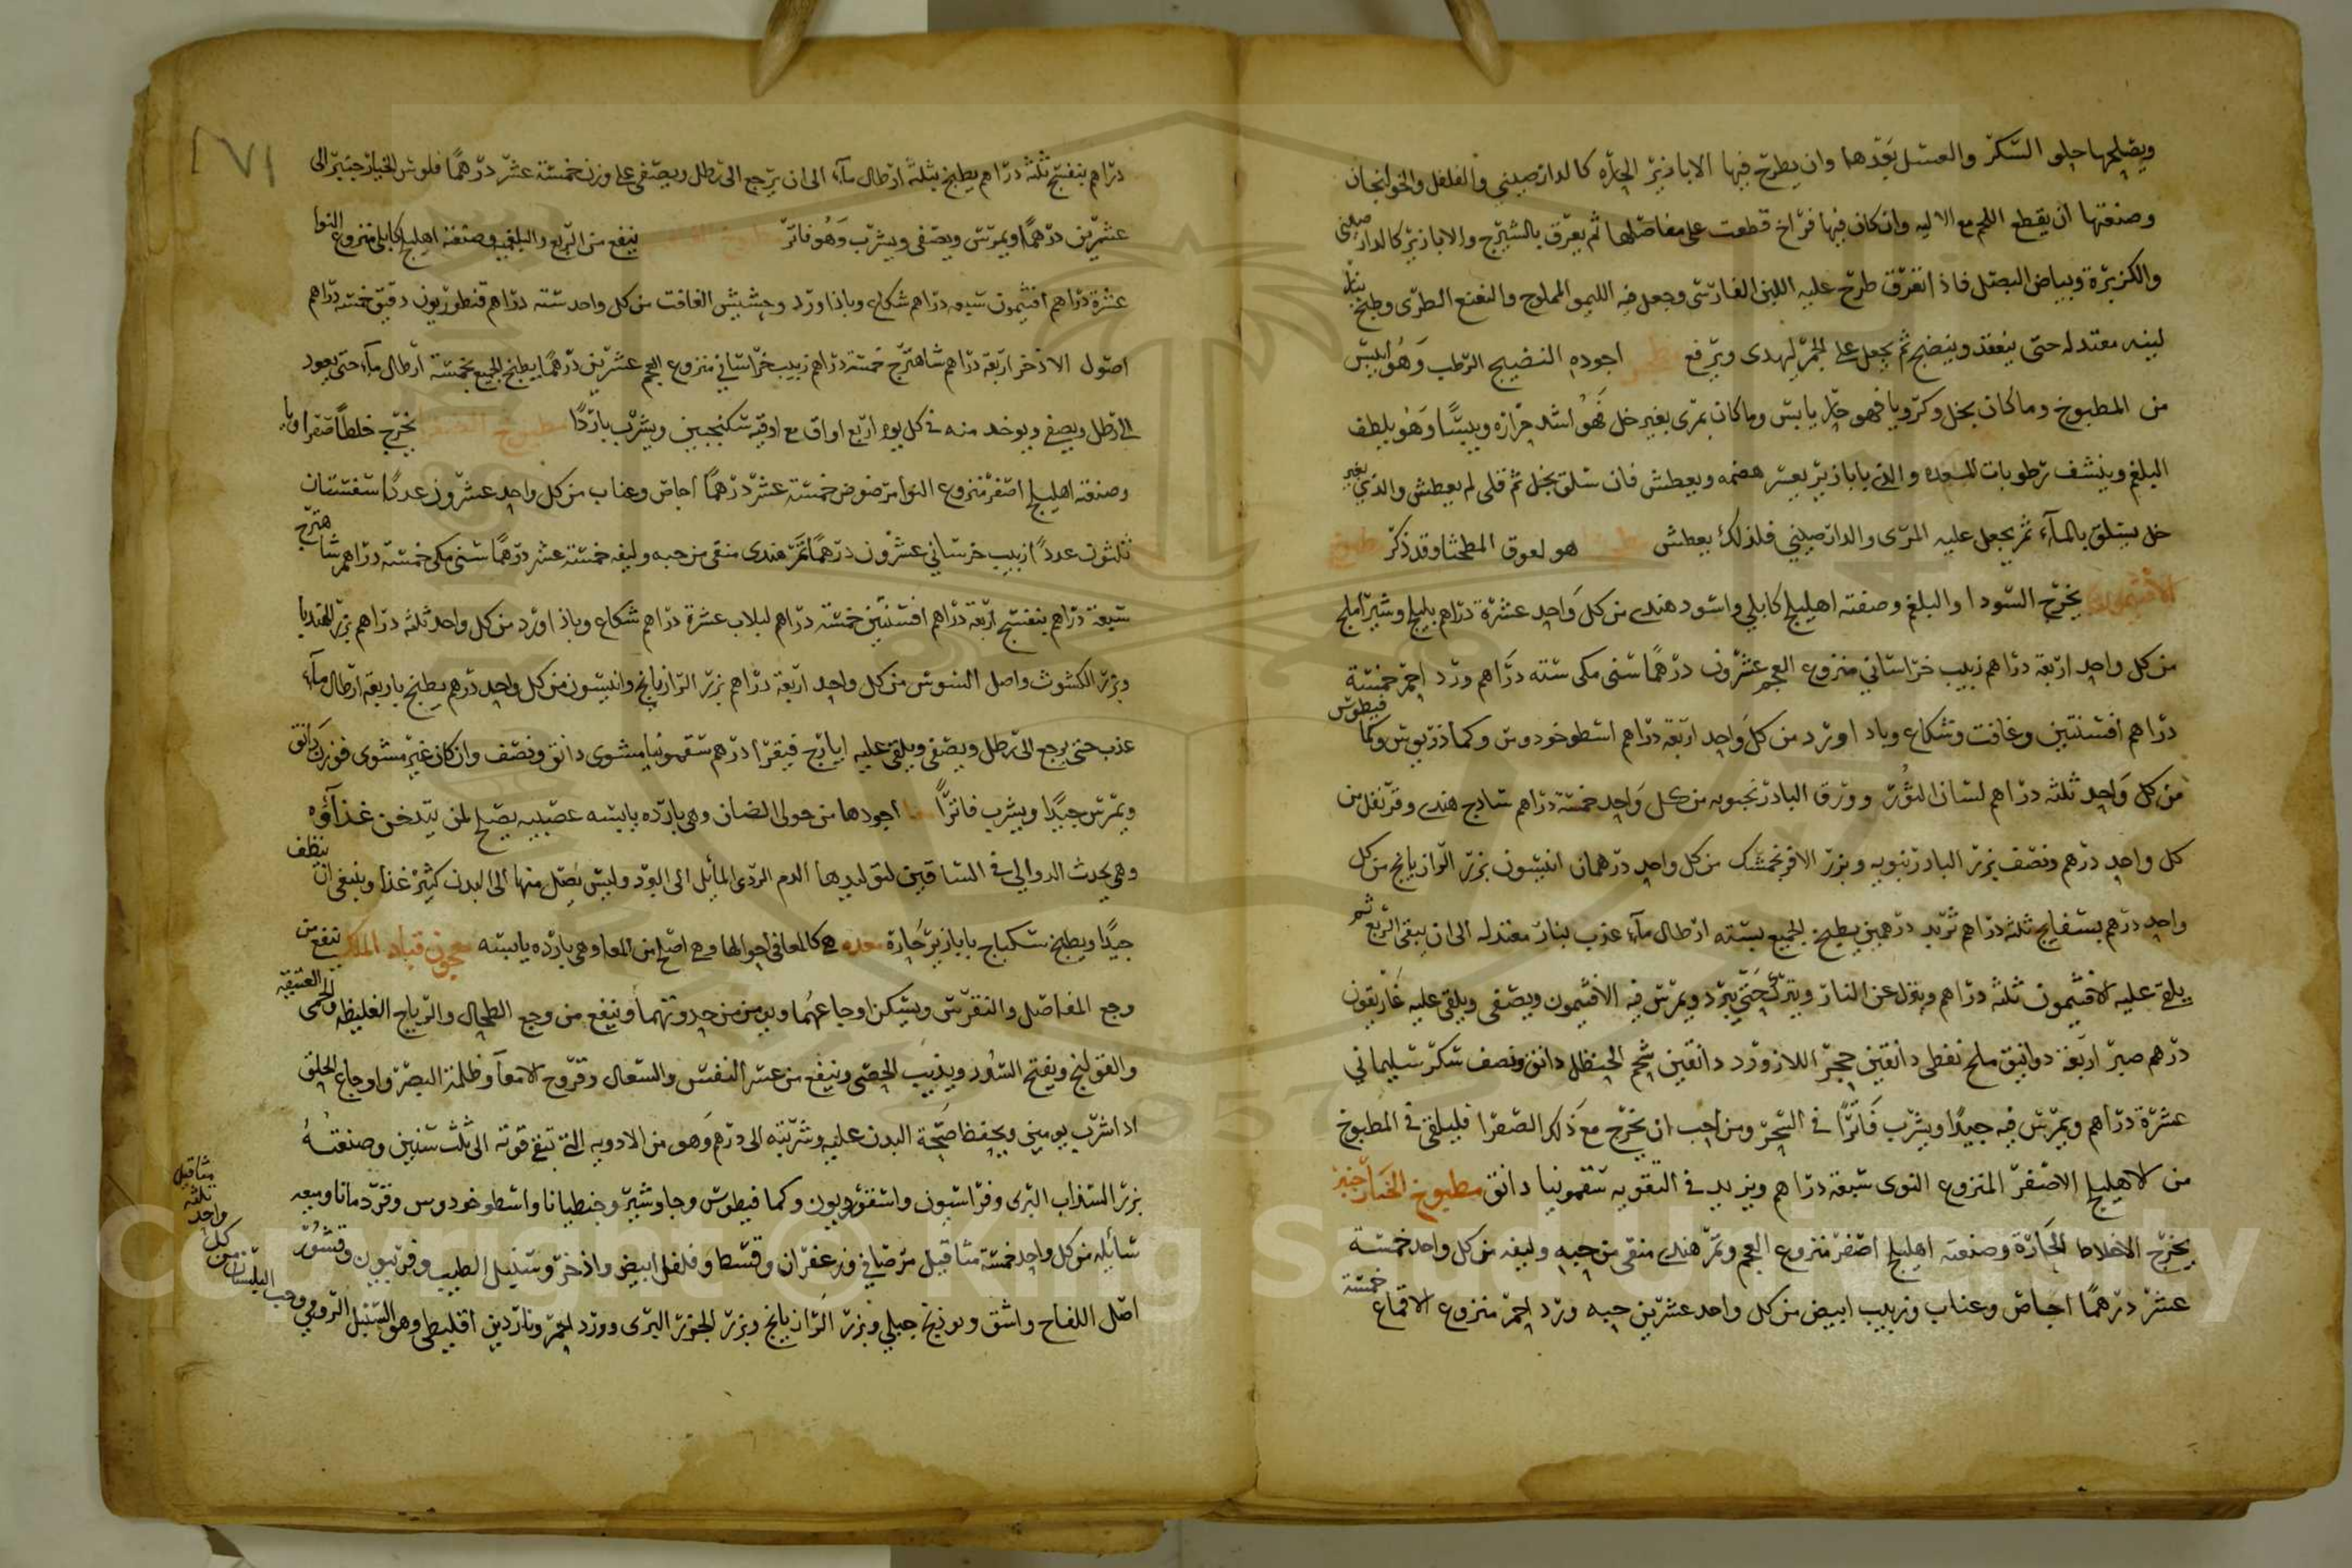 ويصلحها حلو السكر والعسل بعدها وان يطرح فيها الابازير الحاره كالدارصيني والفلفل والخولنجان
وصنعتها ان يقطع اللحم مع الاليه وان كان فيها فراخ قطعت على مفاصلها ثم يعرق بالشيرج والابازير كالدارصيني
والكزبرة وبياض البصل فاذا تعرق طرح عليه اللبن الفارسي وجعل فيه الليمو المملوح والنعنع الطرى وطبخ بنار
لينه معتدله حتى ينعقد وينضج ثم يجعل على الجمر ليهدى ويرفع اجوده النضيج الرطب وهو ايبس
من المطبوخ وماكان بخل وكرويا فهو حار يابس وماكان بمرى بغير خل فهو اشد حرارة ويبسا وهو يلطف
البلغم وينشف رطوبات المعده والذي بابازير يعسر هضمه ويعطش فان سلق بخل ثم قلى لم يعطش والذي بغير
خل يسلق بالماء ثم يجعل عليه المرى والدارصيني فلذلك يعطش هو لعوق المطحثا وقد ذكر طبيخ
الافتيمون يخرج السودا والبلغم وصنعته اهليلج كابلي واسود هندى من كل واحد عشرة دراهم بليلج وشيراملج
من كل واحد اربعة دراهم زبيب خراساني منزوع العجم عشرون درهما سنى مكى سته دراهم ورد احمر خمسة
دراهم افسنتين وغافت وشكاع وباداورد من كل واحد اربعة دراهم اسطوخودوس وكمادريوس وكمافيطوس
من كل واحد ثلثه دراهم لسان الثور وورق البادرنجبويه من كل واحد خمسة دراهم سادج هندى وقرنفل من
كل واحد درهم ونصف بزر البادرنبويه وبزر الافرنجمشك من كل واحد درهمان انيسون بزر الرازيانج من كل
واحد درهم بسفايج ثلثة دراهم تربد درهمين يطبخ الجميع بسته ارطال ماء عذب بنار معتدله الى ان يبقى الربع ثم
يلقى عليه الافتيمون ثلثه دراهم وينزل عن النار ويترك حتى يبرد ويمرس فيه الافتيمون ويصفى ويلقى عليه غاريقون
درهم صبر اربعة دوانيق ملح نفطى دانقين حجر اللازورد دانقين شحم الحنظل دانق ونصف سكر سليماني
عشرة دراهم ويمرس فيه جيدا ويشرب فاترا في السحر ومن احب ان يخرج مع ذلك الصفرا فليلقى في المطبوخ
من الاهليلج الاصفر المنزوع النوى سبعة دراهم ويزيد في التقويه سقمونيا دانق مطبوخ الخيارجنبر
يخرج الاخلاط الحارة وصنعته اهليلج اصفر منزوع العجم وتمر هندى منقى من حبه وليفه من كل واحد خمسة
عشر درهما اجاص وعناب وزبيب ابيض من كل واحد عشرين حبه ورد احمر منزوع الاقماع خمسة
دراهم بنفسج ثلثة دراهم يطبخ بثلثة ارطال ماء الى ان يرجع الى رطل ويصفى على وزن خمسة عشر درهما فلوس الخيارجنبر الى
عشرين درهما ويمرس ويصفى ويشرب وهو فاتر ينفع من الربع والبلغميه وصنعته اهليلج كابلى منزوع النوا
عشرة دراهم افتيمون سبعه دراهم شكاع وباذاورد وحشيش الغافت من كل واحد سته دراهم قنطوريون دقيق خمسه دراهم
اصول الاذخر اربعة دراهم شاهترج خمسة دراهم زبيب خراساني منزوع العجم عشرين درهما يطبخ الجميع بخمسة ارطال ماء حتى يعود
الى رطل ويصفى ويوخد منه فى كل يوم اربع اواق مع اوقيه سكنجبين ويشرب باردا مطبوخ الصفرا يخرج خلطا صفراويا
وصنعته اهليلج اصفر منزوع النوا مرضوض خمسة عشر درهما اجاص وعناب من كل واحد عشرون عددا سفستان
ثلثون عددا زبيب خرساني عشرون درهما تمر هندى منقى من حبه وليفه خمسة عشر درهما سنى مكى خمسة دراهم شاهترج
سبعة دراهم بنفسج اربعة دراهم افسنتين خمسة دراهم لبلاب عشرة دراهم شكاع وباذاورد من كل واحد ثلثه دراهم بزر الهنديا
وبزر الكشوث واصل السوس من كل واحد اربعة دراهم بزر الرازيانج وانيسون من كل واحد درهم يطبخ باربعة ارطال ماء
عذب حتى يرجع الى رطل ويصفى ويلقى عليه ايارج فيقرا درهم سقمونيا مشوى دانق ونصف وان كان غير مشوى فوزن دانق
ويمرس جيدا ويشرب فاترا اجودها من حولى الضان وهى بارده يابسه عصبيه يصلح لمن يتدخن غذاؤه
وهى يحدث الدوالي فى الساقين لتوليدها الدم الردى المايل الى البرد وليس يصل منها الى البدن كثير غذا وينبغى ان ينظف
جيدا ويطبخ سكباج بابازير حارة معده هى كالمعا فى احوالها وهى اصلح من المعا وهى بارده يابسه معجون قباد الملك ينفع من
وجع المفاصل والنقرس ويسكن اوجاعهما ويومن من حدوثهما وينفع من وجع الطحال والرياح الغليظه والحمى العتيقه
والقولنج ويفتح السدد ويذيب الحصى وينفع من عسر النفس والسعال وقروح الامعا وظلمة البصر واوجاع الحلق
اذا شرب يومين ويحفظ صحة البدن عليه وشربته الى درهم وهو من الادويه التى تبقى قوته الى ثلث سنين وصنعته
بزر السذاب البرى وفراسيون واسقورديون وكمافيطوس وجاوشير وجنطيانا واسطوخودوس وقردمانا وميعه
سائله من كل واحد خمسة مثاقيل مر صافى وزعفران وقسط وفلفل ابيض واذخر وسنبل الطيب وفربيون وقشور
اصل اللفاح واشق وفودنج جبلي وبزر الرازيانج وبزر الجزر البرى وورد احمر وناردين اقليطى وهو السنبل الرومي وحب البلسان من كل واحد ثلثه مثاقيل